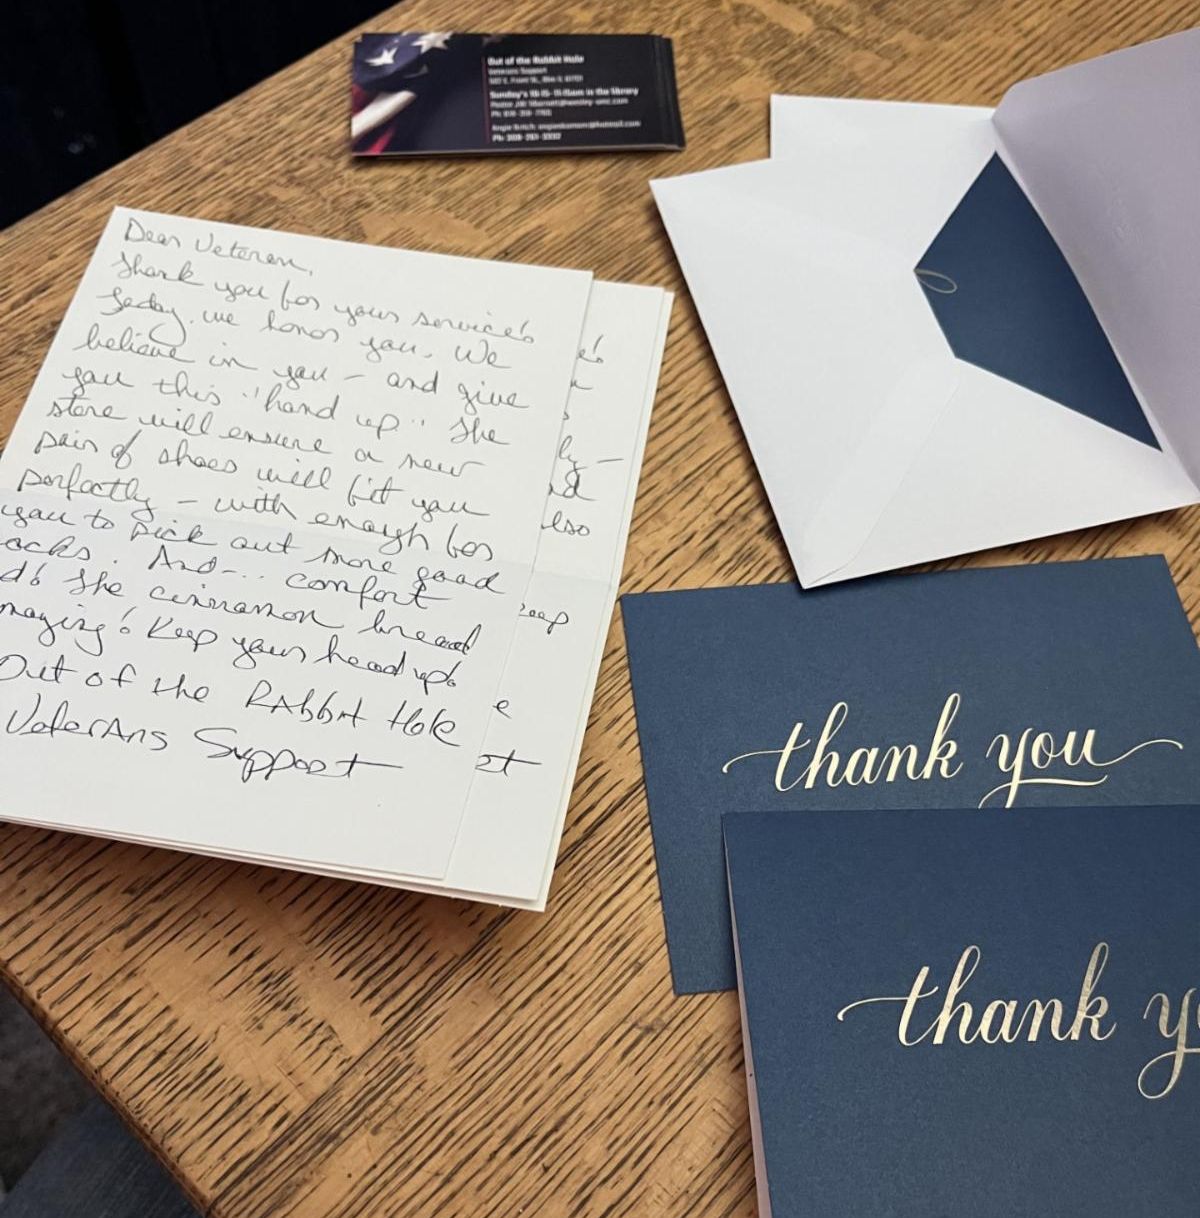 Out of the Rabbit Hole
Veterans Support
Sunday's 10:15-11:15am in the library
Dear Veteran,
Thank you for your service!
Today, we honor you. We
believe in you - and give
you this "hand up". The
store will ensure a new
pair of shoes will fit you
perfectly - with enough for
you to pick out some good
ocks. And... comfort
d! The cinnamon bread
mazing! Keep your head up!
Out of the RAbbit Hole
VeterAns Support
e!
ly -
nd
lso
eep
e
rt
thank you
thank yo